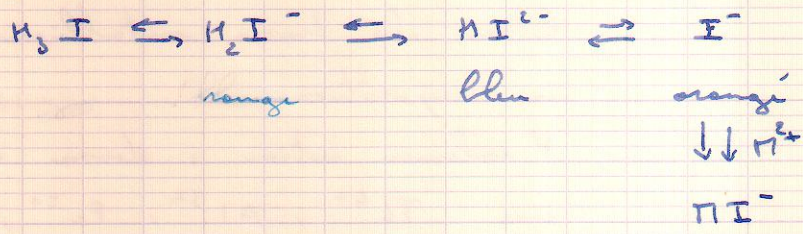 H₃I ⇆ H₂I⁻ ⇆ HI²⁻ ⇄ I⁻
rouge bleu orangé
↓↓ M²⁺
MI⁻